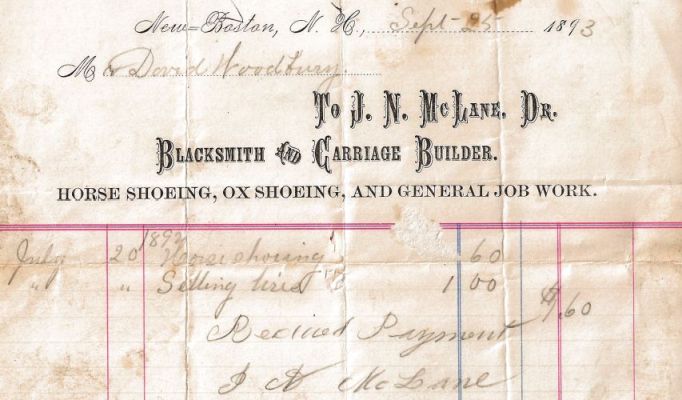 New=Boston, N. H., Sept 25 1893
Mr David Woodbury.
To J. N. McLane, Dr.
Blacksmith and Carriage Builder.
HORSE SHOEING, OX SHOEING, AND GENERAL JOB WORK.
July 20 1892 Horse shoeing 60
" " Setting tires 1 00
$1.60
Recived Payment
J N McLane